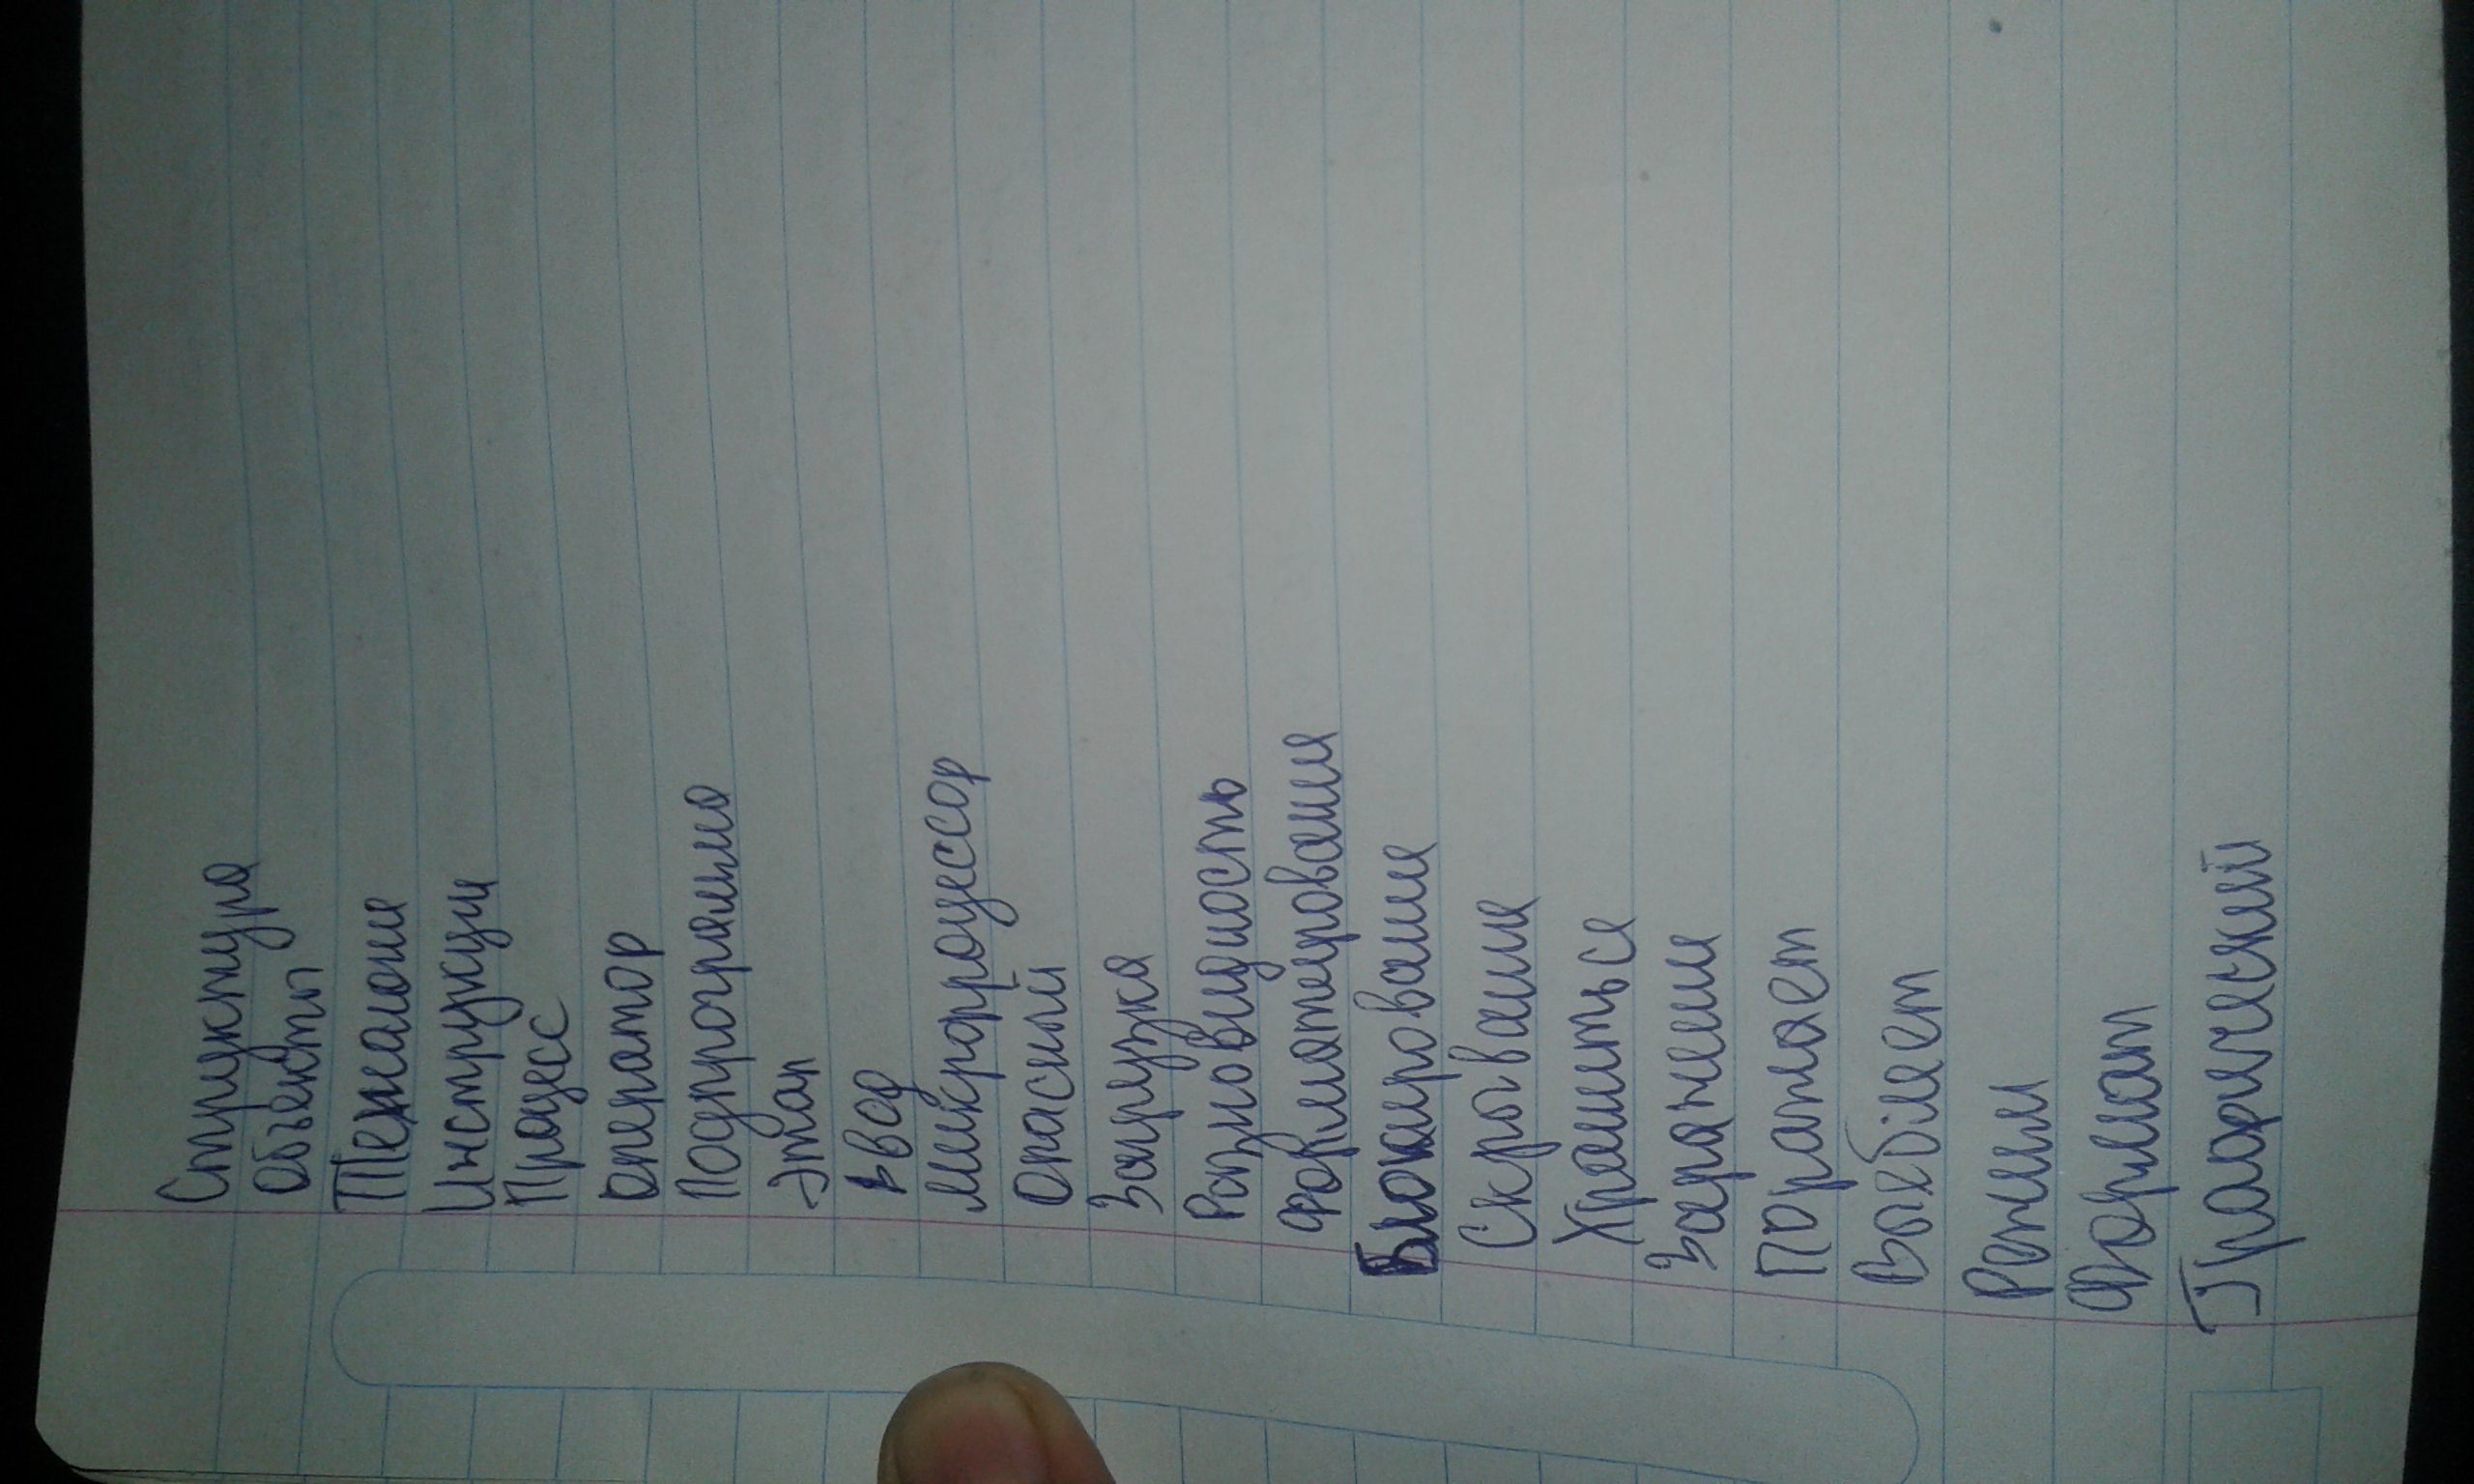 Структура
объекты
Тежание
Инструкци
Процесс
оператор
Подпрограмма
Этап
ввод
микропроцессор
Опасный
Загрузка
Разновидность
форматирования
Блокирование
Скрывания
Хранится
Заражение
Поражает
Режим
Формат
Графический